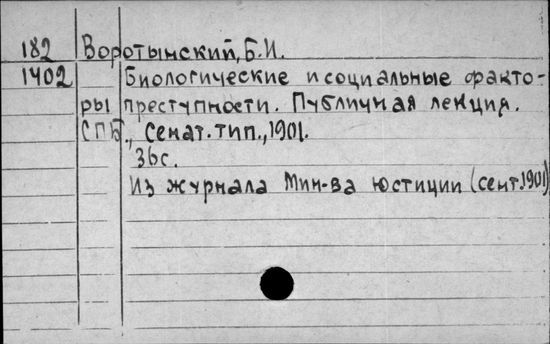 182 Воротынский, Б.И.
1402 Биологические и социальные факто-
ры преступности. Публичная лекция.
СПб., Сенат. тип., 1901.
36с.
Из журнала Мин-ва юстиции (сент.1901)